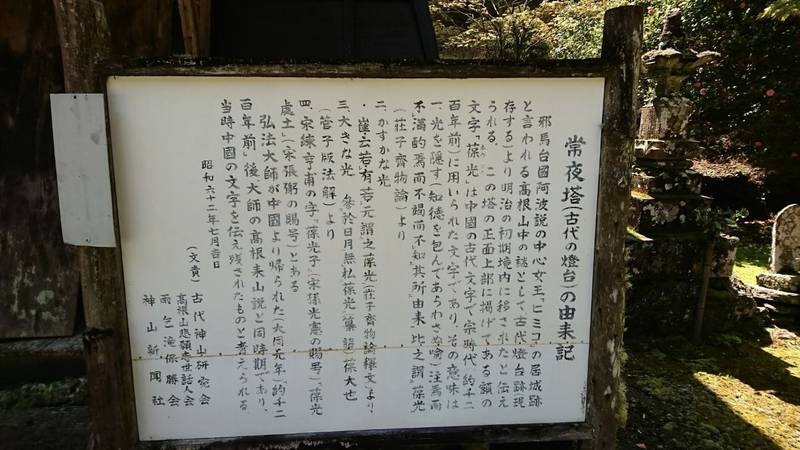 常夜塔(古代の燈台)の由来記
邪馬台國阿波説の中心女王「ヒミコ」の居城跡
と言われる高根山中の謎として、古代燈台跡現
存する)より明治の初期境内に移されたと伝え
うれる。この塔の正面上部に掲げてある額の
文字「葆光」は中國の古代文字で宗時代(約千二
百年前)に用いられた文字であり、その意味は
一、光を隠す(知徳を包んであらわさぬ喩)注焉而
不満酌焉而不竭而不知其所由来比之謂葆光
(荘子齊物論)より
二、かすかな光
・崔云若有若元謂之葆光(荘子齊物論釋文より)
三、大きな光 参於日月無私葆光(集詁)葆大也
(管子版法解)より
四、宋練亨甫の字「葆光子」(宋孫光憲の賜号)、葆光
處士」(宋張弼の賜号)とある
弘法大師が中國より帰られた(大同元年)約千二
百年前)後大師の高根来山説と同時期であり、
当時中國の文字を伝え残されたものと考えられる
昭和六十二年七月吉日
(文責)古代神山研究会
高根山悲願寺世話人会
雨乞滝保勝会
神山新聞社